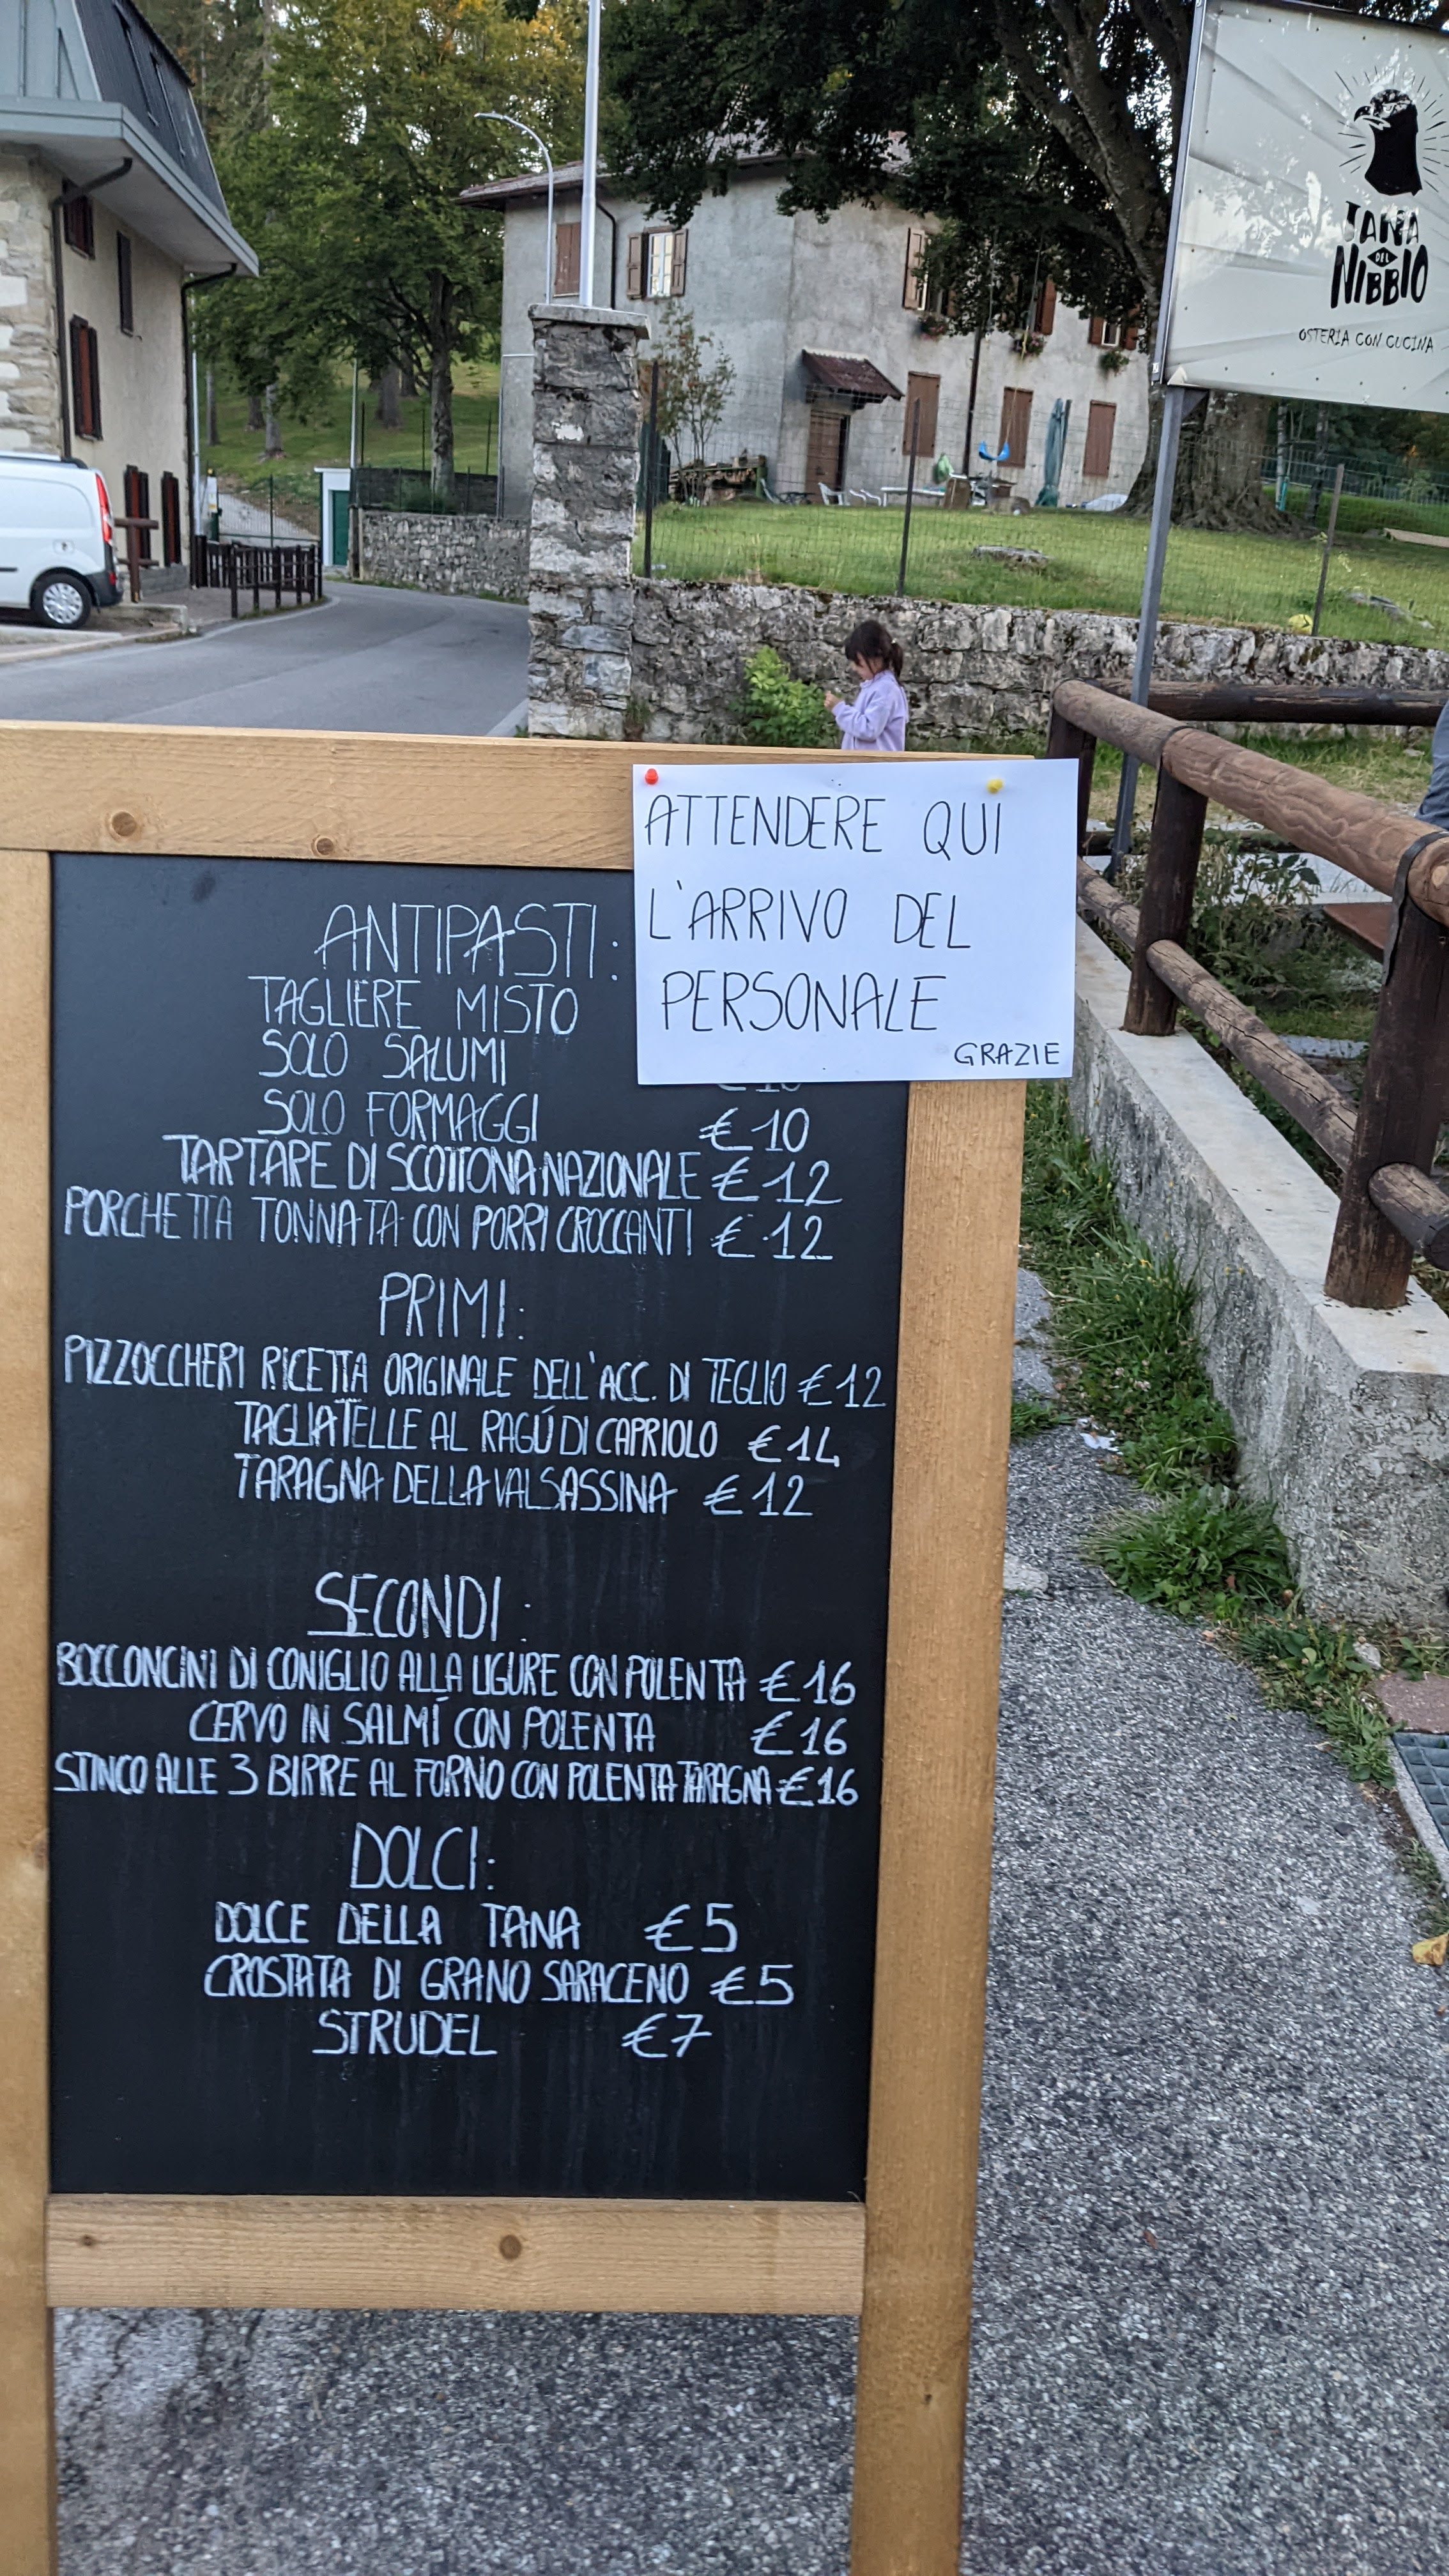 TANA
DEL
NIBBIO
OSTERIA CON CUCINA
ATTENDERE QUI
L'ARRIVO DEL
PERSONALE
GRAZIE
ANTIPASTI:
TAGLIERE MISTO
SOLO SALUMI
SOLO FORMAGGI €10
TARTARE DI SCOTTONA NAZIONALE €12
PORCHETTA TONNATA CON PORRI CROCCANTI €12
PRIMI:
PIZZOCCHERI RICETTA ORIGINALE DELL'ACC. DI TEGLIO €12
TAGLIATELLE AL RAGÚ DI CAPRIOLO €14
TARAGNA DELLA VALSASSINA €12
SECONDI:
BOCCONCINI DI CONIGLIO ALLA LIGURE CON POLENTA €16
CERVO IN SALMÍ CON POLENTA €16
STINCO ALLE 3 BIRRE AL FORNO CON POLENTA TARAGNA €16
DOLCI:
DOLCE DELLA TANA €5
CROSTATA DI GRANO SARACENO €5
STRUDEL €7